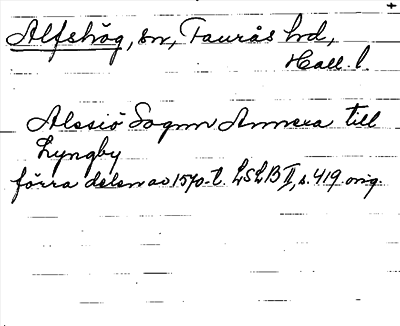 Alfshög, sn, Faurås hrd,
Hall. l.
Alssiö Sognn Annexa till
Lyngby
förra delen av 1570-t. LSLB II, s. 419 orig.